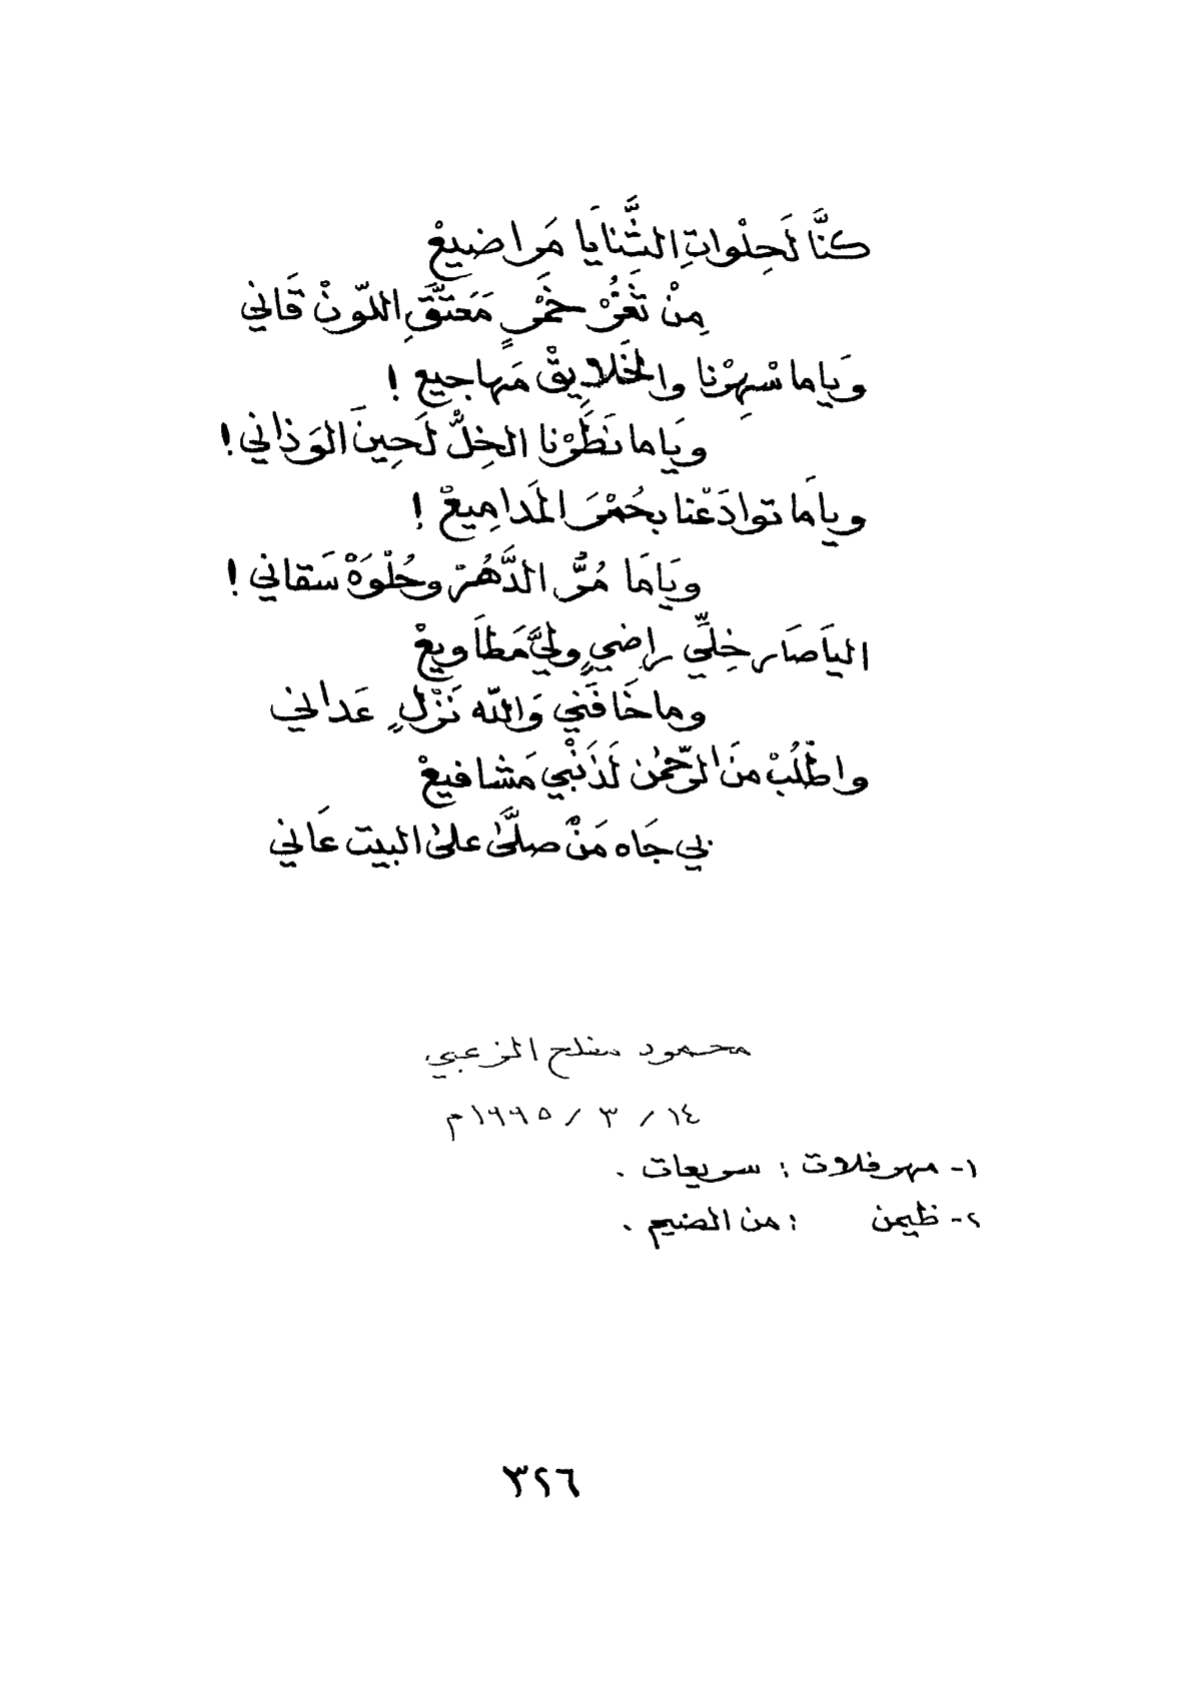 كنَّا لَحِلْواتِ الثَّنايَا مَراضيعْ
مِنْ ثَغُرْ خَمْرٍ مَعَتَّقِ اللّونْ قَاني
وَياما سْهِرْنا والخَلايِقْ مَهاجيع !
ويَاما نَطَرْنا الخِلّْ لَحِينَ الوَذاني !
وياَما توادَعْنا بحُمْرَ المَدامِيعْ !
ويَامَا مُرُّ الدَّهُرْ وحُلْوَهْ سَقاني !
اليَاصَار خِلِّي راضيٍ ولِيَّ مَطاَويعْ
وماخَافَني وَالله نَزْلٍ عَداني
واطْلُبْ منَ الرّحمٰن لَذَنْبي مَشافيعْ
بي جَاه مَنْ صلَّىٰ علىٰ البيت عَاني
محمود مفلح الزعبي
١٤ / ٣ / ١٩٩٥م
١- مهرفلات : سريعات .
٢- ظيمن : من الضيم .
٣٢٦